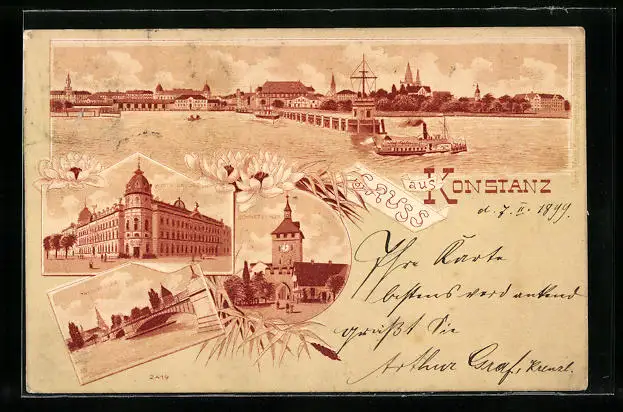 Gruss
aus Konstanz
d. 7. II. 1899.
Ihre Karte
bestens verdankend
grüßt Sie
Arthur Graf,
2419